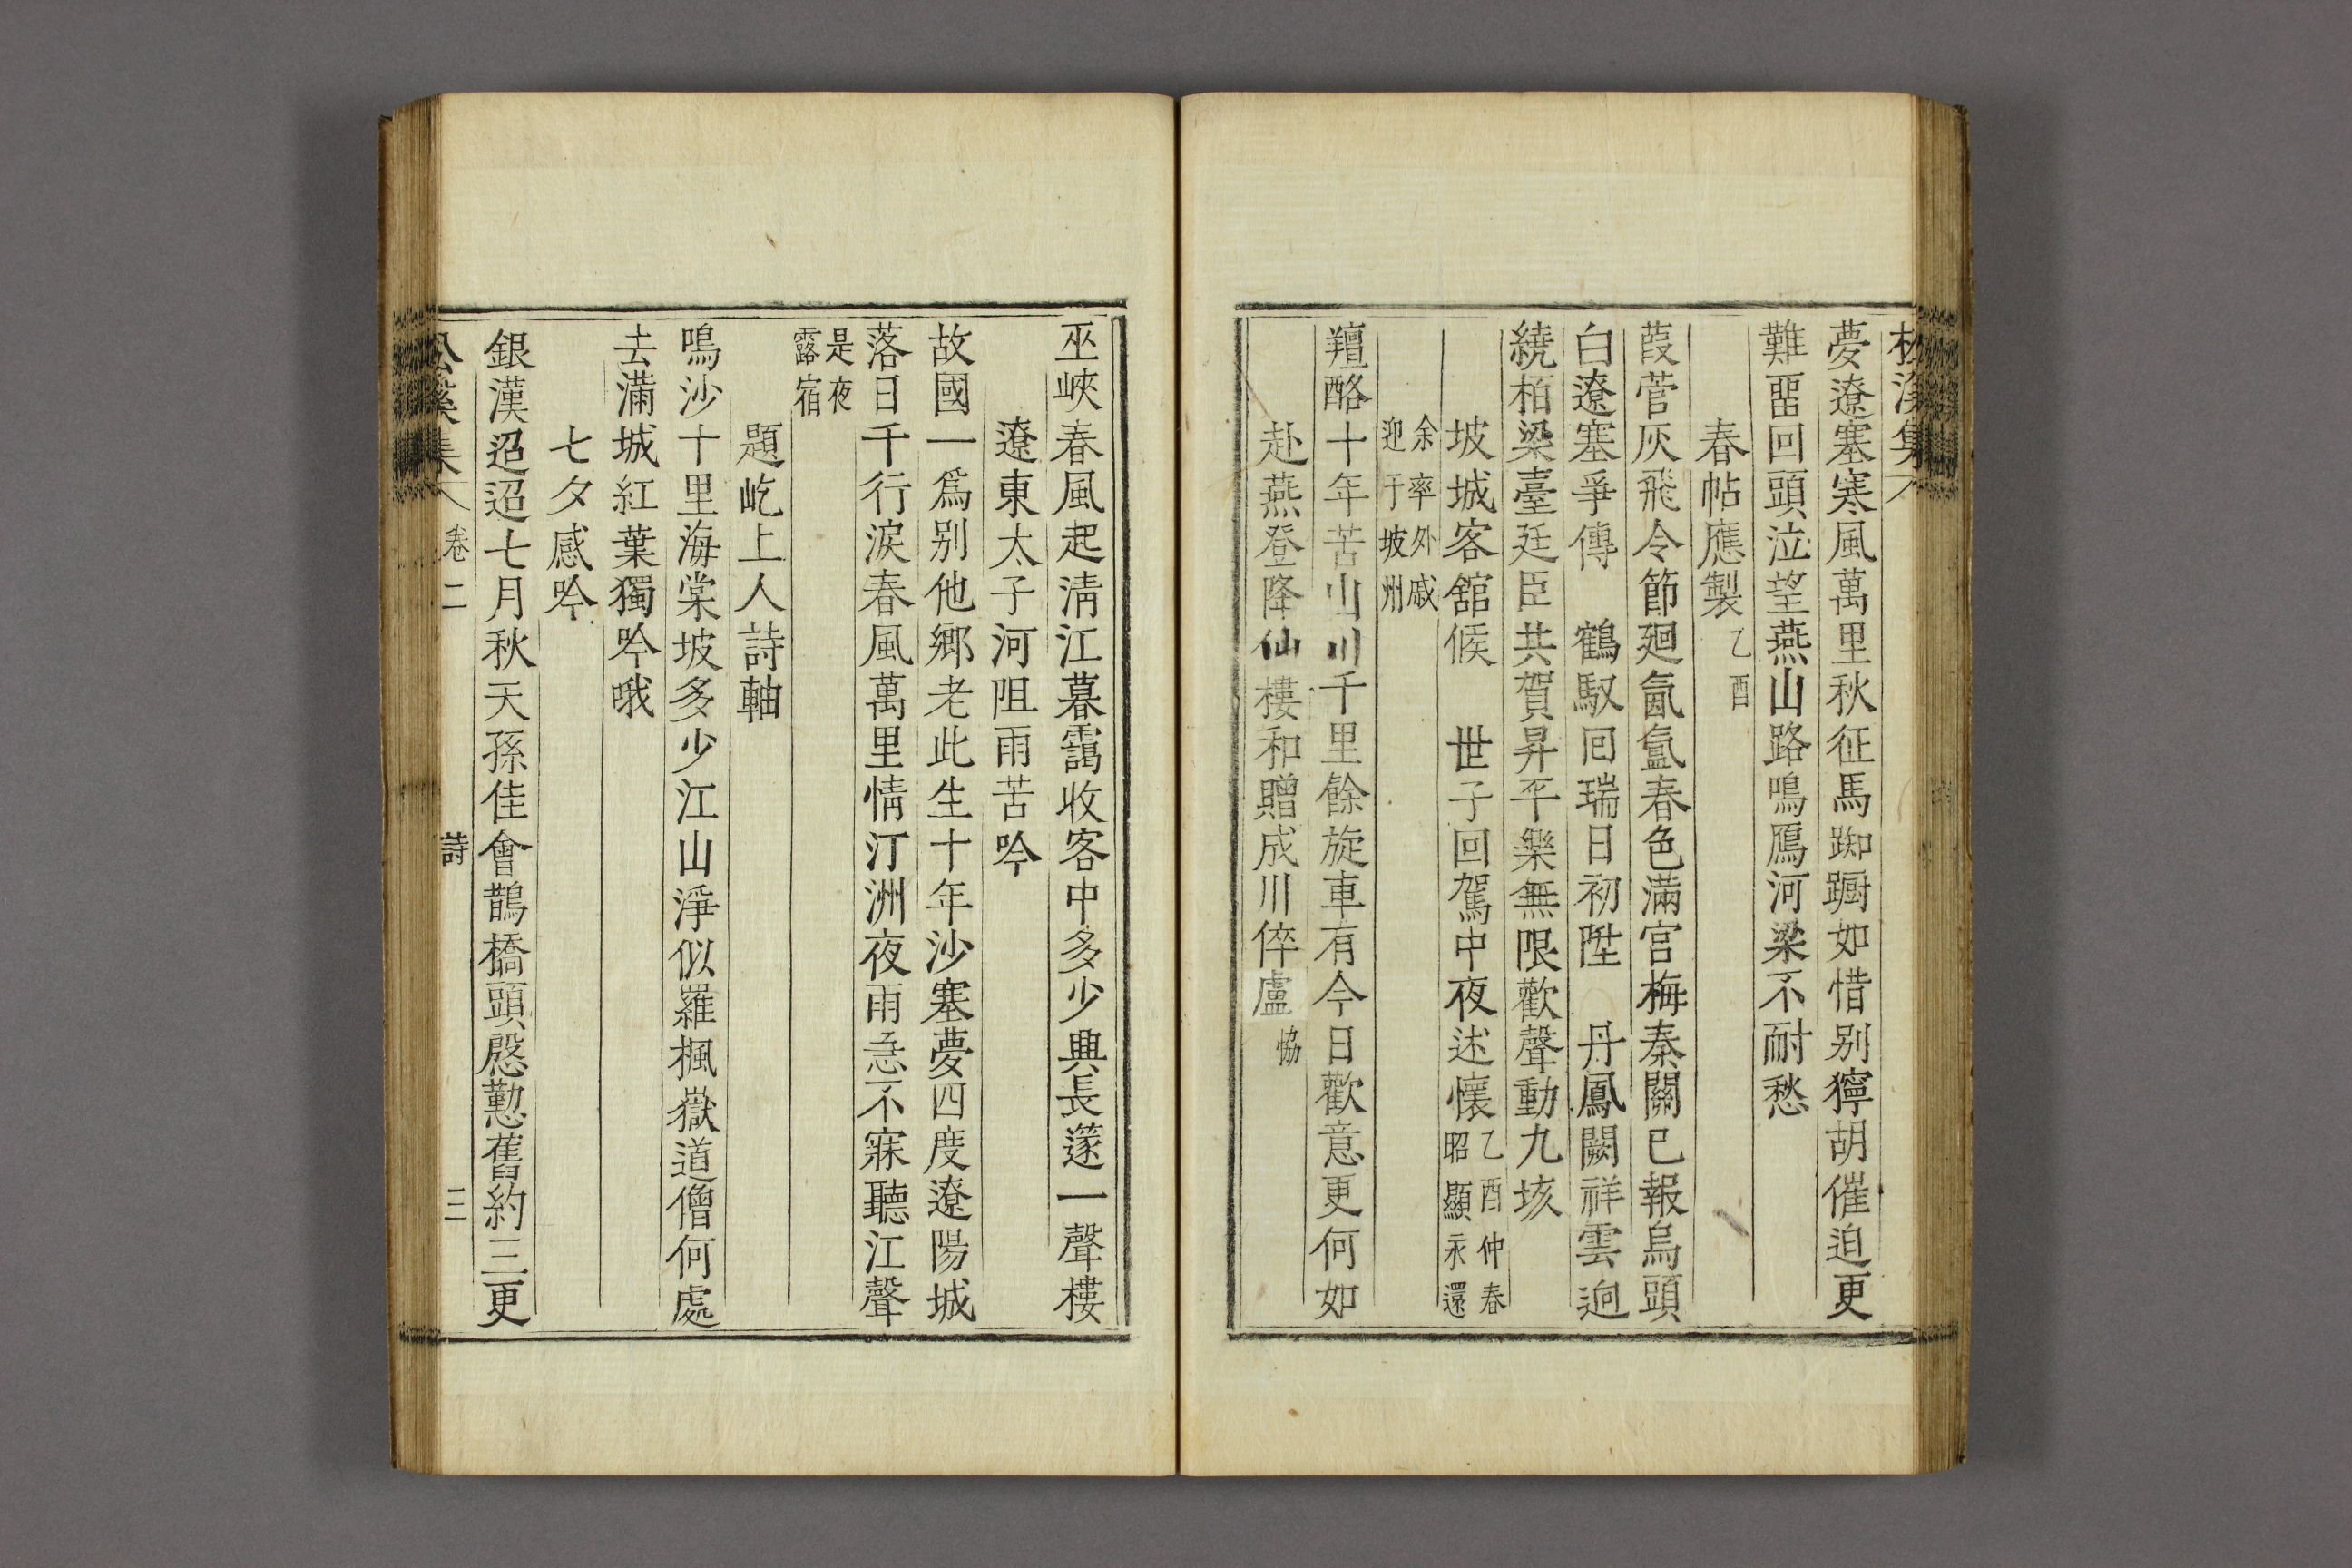 松溪集
夢遼塞寒風萬里秋征馬踟躕如惜别獰胡催迫更
難畱回頭泣望燕山路鳴鴈河梁不耐愁
春帖應製 乙酉
葭菅灰飛令節廻氤氳春色滿宫梅秦關已報烏頭
白遼塞爭傳 鶴馭囘瑞日初陞 丹鳳闕祥雲逈
繞栢梁臺廷臣共賀昇平樂無限歡聲動九垓
坡城客舘候 世子回駕中夜述懷 乙酉仲春
昭顯永還
余率外戚
迎于坡州
羶酪十年苦山川千里餘旋車有今日歡意更何如
赴燕登降仙樓和贈成川倅盧 恊
巫峽春風起淸江暮靄收客中多少興長篴一聲樓
遼東太子河阻雨苦吟
故國一爲别他鄉老此生十年沙塞夢四度遼陽城
落日千行淚春風萬里情汀洲夜雨急不寐聽江聲
是夜
露宿
題屹上人詩軸
鳴沙十里海棠坡多少江山淨似羅楓嶽道僧何處
去滿城紅葉獨吟哦
七夕感吟
銀漢迢迢七月秋天孫佳會鵲橋頭慇懃舊約三更
松溪集 卷二 詩 三